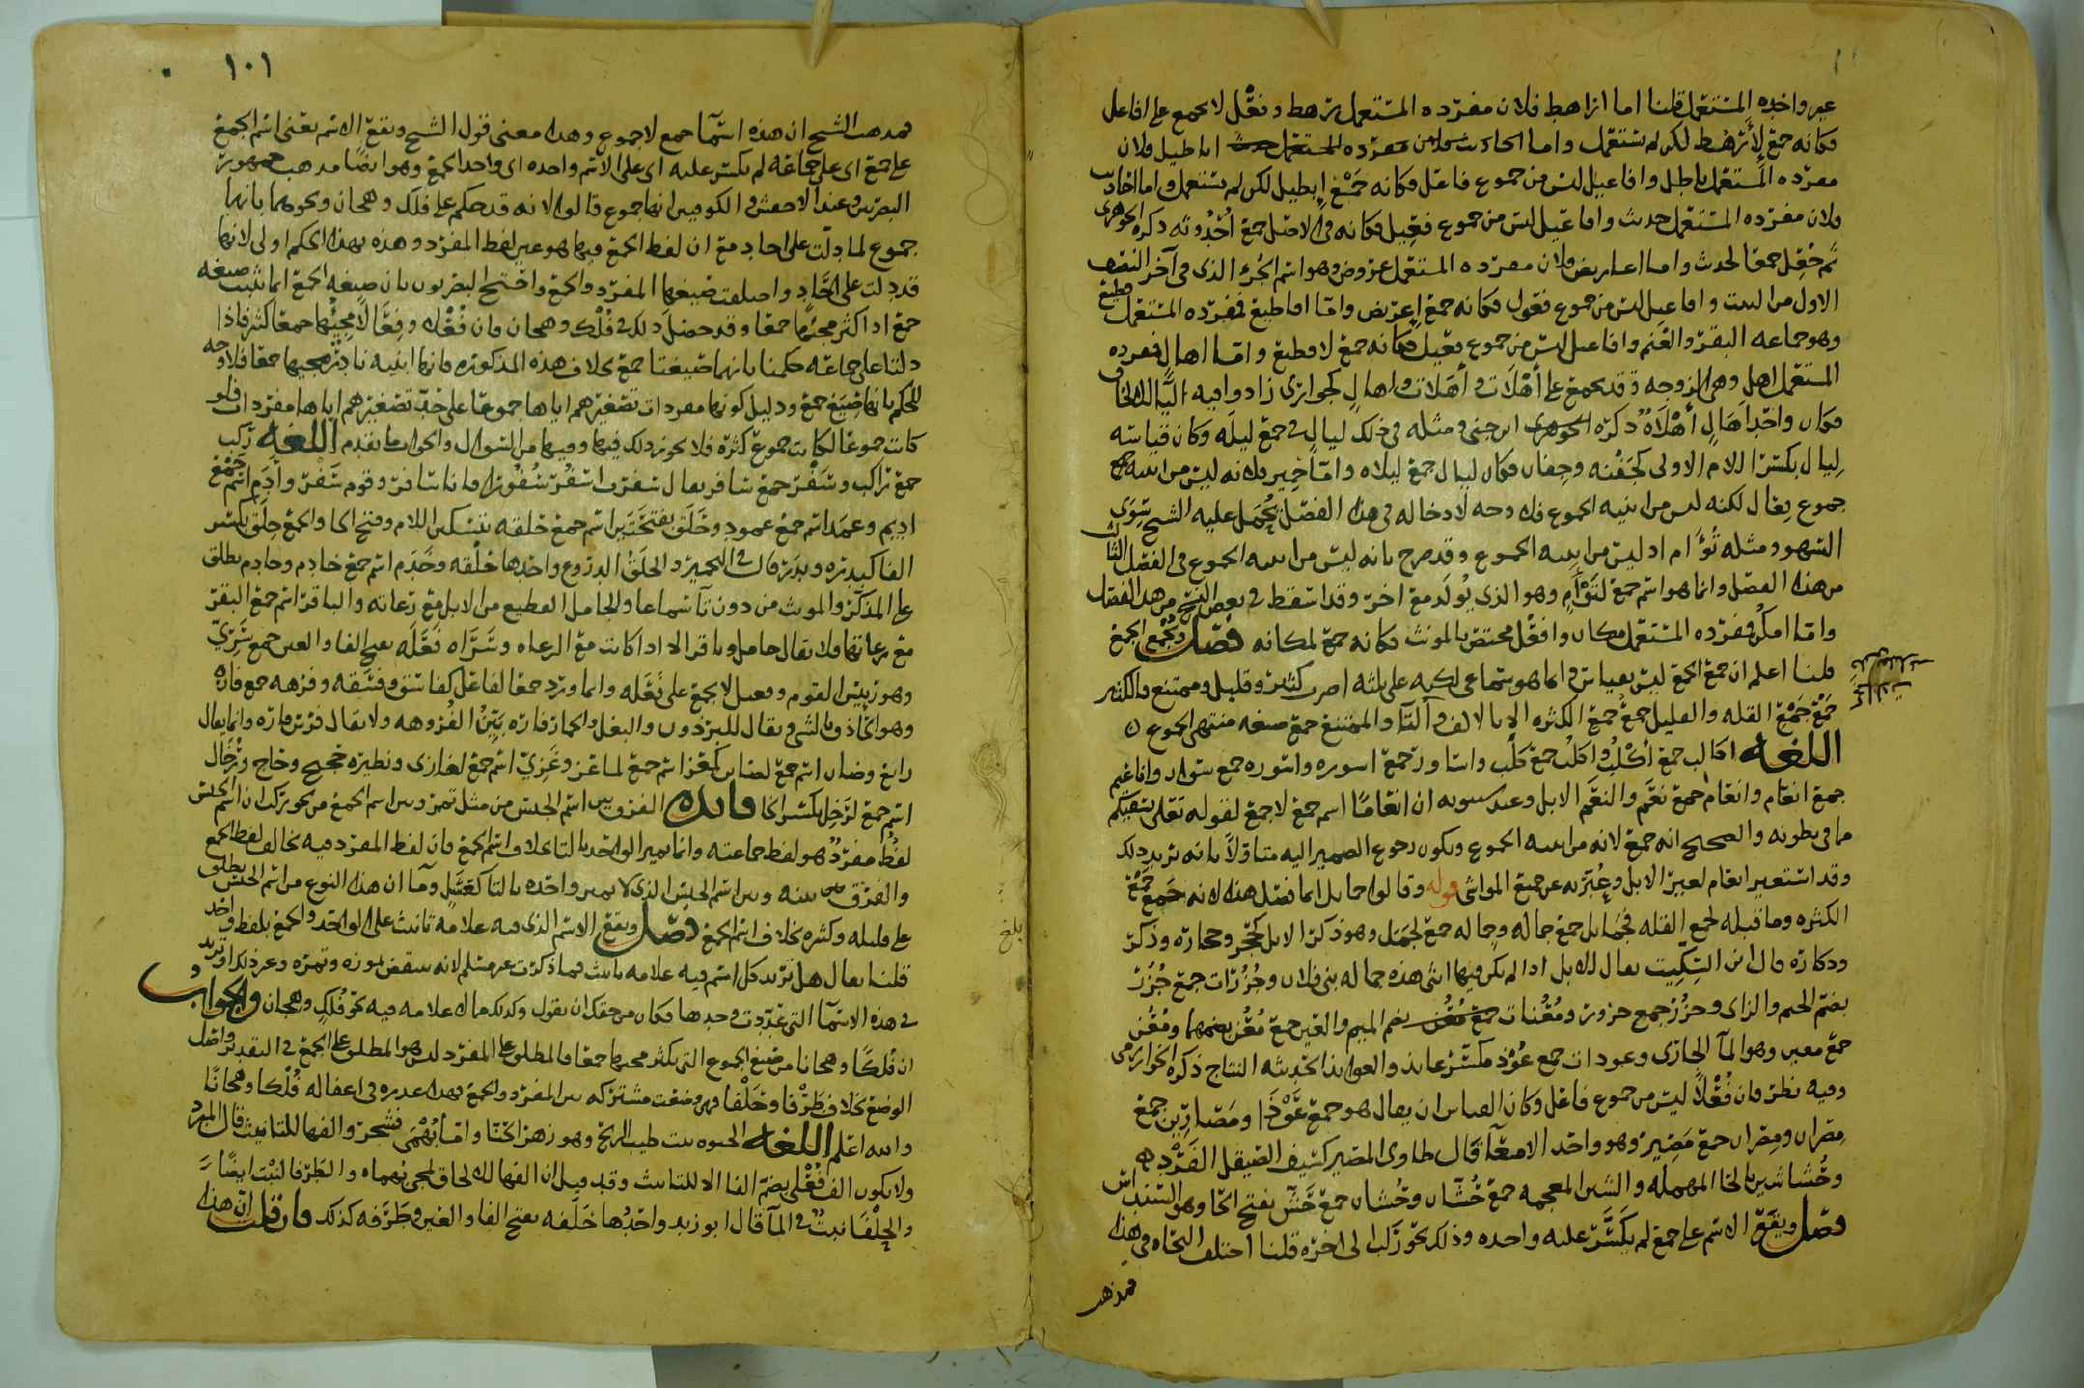 غير واحده المستعمل قلنا اما اراهط فلان مفرده المستعمل رهط وفعل لا يجمع على افاعل
فكانه جمع لأرهط لكن لم يستعمل واما اباطيل فلان
مفرده المستعمل باطل وافاعيل ليس من جموع فاعل فكانه جمع إبطيل لكن لم يستعمل واما احاديث
فلان مفرده المستعمل حديث وافاعيل ليس من جموع فعيل فكانه في الاصل جمع أحدوثه ذكره الجوهري
ثم جعل جمعا لحديث واما اعاريض فلان مفرده المستعمل عروض وهو اسم الجزء الذي في آخر النصف
الاول من البيت وافاعيل ليس من جموع فعول فكانه جمع إعريض واما اقاطيع فمفرده المستعمل قطيع
وهو جماعه البقر والغنم وافاعيل ليس من جموع فعيل فكانه جمع لاقطيع واما اهال فمفرده
المستعمل اهل وهي الزوجه وقد يجمع على أهلات وأهلات واهال كجوارى زادوا فيه الياء
فكان واحد أهال أهلاة ذكره ابن جني ومثله في ذلك ليال في جمع ليله وكان قياسه
ليال بكسر اللام الاولى كجفنه وجفان فكان ليال جمع ليلاه واما حمير فلانه ليس من ابنيه
جموع فعال لكنه ليس من ابنيه الجموع فلا وجه لادخاله في هذا الفصل يحمل عليه الشيخ سوى
السهو ومثله تؤام اذ ليس من ابنيه الجموع وقد صرح بانه ليس من ابنيه الجموع في الفصل الثالث
من هذا الفصل وانما هو اسم جمع لتوأم وهو الذي يولد مع اخر وقد اسقط في بعض النسخ من هذا الفصل
واما امكن فمفرده المستعمل مكان وافعل مختص بالمونث فكانه جمع لمكانه فصل ويجمع الجمع
قلنا اعلم ان جمع الجمع ليس بقياس وانما هو سماعي لكنه على ثلثه اضرب كثير وقليل وممتنع فالكثير
جمع جمع القله والقليل جمع جمع الكثره الا بالالف والتا والممتنع جمع صيغه منتهى الجموع
اللغه اكالب جمع أكلب واكلب جمع كلب واساور جمع اسوره واسوره جمع سوار واناعيم
جمع انعام وانعام جمع نعم والنعم الابل وعند سيبويه ان انعاما اسم جمع لا جمع لقوله تعالى نسقيكم
مما في بطونه والصحيح انه جمع لانه من ابنيه الجموع ويكون رجوع الضمير اليه متاولا بانه يريد ذلك
وقد استعير انعام لغير الابل وعبر به عن جميع المواشي قوله وقالوا جمايل انما فصل هذه لانه جمع جمع
الكثره وما قبله لجمع القله فجمايل جمع جماله وجماله جمع لجمل وهو ذكر الابل كحجر وحجاره وذكر
وذكاره قال ابن السكيت يقال للابل اذا لم يكن فيها انثى هذه جماله بني فلان وجزرات جمع جزر
بضم الجيم والزاى وجزر جمع جزور ومعنات بضم الميم والعين جمع معن بضمهما ومعن
جمع معين وهو المآ الجارى وعوذات جمع عوذ مكسر عايذ والعوايذ الحديثه النتاج ذكره الخوارزمي
وفيه نظر فان فعلا ليس من جموع فاعل وكان القياس ان يقال هو جمع عوذ ومصارين جمع
مصران ومصران جمع مصير وهو واحد الامعآ قال طاوى المصير كسيف الصيقل الفرد
وحشاشين بالحا المهمله والشين المعجمه جمع حشان وحشان جمع حش بفتح الحا وهو البستان
فصل ويقع الاسم على جمع لم يكسر عليه واحده وذلك نحو ركب الى اخره قلنا اختلف النحاه في هذه
فمذهب
١٠١
فمذهب الشيخ ان هذه اسمآ جمع لا جموع وهذا معنى قول الشيخ ويقع الاسم يعني اسم الجمع
على جمع اى على جماعه لم يكسر عليه اى على الاسم واحده اى واحد الجمع وهو ايضا مذهب جمهور
البصريين وعند الاخفش والكوفيين انها جموع قالوا لانه قد حكم على فلك وهجان ونحوهما بانها
جموع لما دلت على احاد مع ان لفظ الجمع فيها هو عين لفظ المفرد وهذه بهذا الحكم اولى لانها
قد دلت على آحاد واختلفت صيغها المفرد والجمع واحتج البصريون بان صيغه الجمع انما تثبت صيغه
جمع اذا كثر مجيها جمعا وقد حصل ذلك في فلك وهجان فان فعلا وفعالا مجيئهما جمعا كثر فاذا
دلتا على جماعه حكمنا بانهما صيغتا جمع بخلاف هذه المذكوره فانها ابنيه نادر مجيها جمعا فلا وجه
للحكم بانها صيغ جمع ودليل كونها مفردات تصغيرهم اياها جموعا على حد تصغيرهم اياها مفردات فلو
كانت جموعا لكانت جموع كثره فلا يجوز ذلك فيها وفيها من السوال والجواب ما تقدم اللغه ركب
جمع راكب وسفر جمع سافر يقال سفرت اسفر سفورا فانا سافر وقوم سفر وأدم اسم جمع
اديم وعمد اسم جمع عمود وحلق بفتحتين اسم جمع حلقه بتسكين اللام وفتح الحا والجمع حلق بكسر
الفا كبدره وبدر قال في الحلق الدروع واحدها حلقه وخدم اسم جمع خادم وخادم يطلق
على المذكر والمونث من دون تآ سماعا والجامل القطيع من الابل مع رعاته والباقر اسم جمع البقر
مع رعاتها ولا يقال جامل وباقر الا اذا كانت مع الرعاه وسراه فعله بفتح الفا والعين جمع سرى
وهو رئيس القوم وفعيل لا يجمع على فعله وانما ورد جمعا لفاعل كفاسق وفسقه وفرهه جمع فاره
وهو الحاذق بالشى ويقال للبرذون والبغل والحمار فاره بين الفروهه ولا يقال فرس فاره وانما يقال
رايع وضان اسم جمع لضاين كمعز اسم جمع لماعز وغزى اسم جمع لغازى ونظيره حجيج وحاج ورخال
اسم جمع لرخل بكسر الخا فايده الفرق بين اسم الجنس من مثل تمر وبين اسم الجمع من نحو ركب ان اسم الجنس
لفظ مفرد هو لفظ جماعته وانما يميز الواحد بالتا بخلاف اسم الجمع فان لفظ المفرد فيه يخالف لفظ الجمع
والفرق بينه وبين اسم الجنس الذى لا يميز واحده بالتا كعسل ومآ ان هذا النوع من اسم الجنس يطلق
على قليله وكثيره بخلاف اسم الجمع فصل ويقع الاسم الذى فيه علامه تانيث على الواحد والجمع بلفظ واحد
قلنا يقال هل تريد كل اسم فيه علامه تانيث فما ذكرت غير مسلم لانه ينتقض بموزه وتمره وغير ذلك او تريد
في هذه الاسمآ التي عددت وحدها فكان من حقك ان تقول وكذلك ما لا علامه فيه نحو فلك وهجان والجواب
ان فلكا وهجانا من صيغ الجموع التي يكثر مجيها جمعا فالمطلق على المفرد ليس هو المطلق على الجمع في التقدير واصل
الوضع بخلاف طرفا وحلفا فهي وضعت مشتركه بين المفرد والجمع فهذا عذره في اغفاله فلكا وهجانا
والله اعلم اللغه الحنوه نبت طيب الريح وهو زهر الحنا واما بهمى فشجر والفها للتانيث قال المبرد
ولا يكون الف فعلى بضم الفا الا للتانيث وقد قيل ان الفها للالحاق لمجى بهماه والطرفا لنبت ايضا
والحلفا نبت في المآ قال ابو زيد واحدها حلفه بفتح الفا والعين وطرفه كذلك فان قلت ان هذا
بلغ